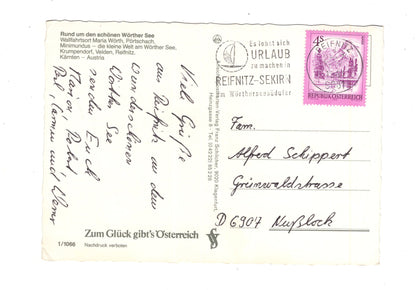 Rund um den schönen Wörther See
Wallfahrtsort Maria Wörth, Pörtschach,
Minimundus – die kleine Welt am Wörther See,
Krumpendorf, Velden, Reifnitz.
Kärnten – Austria
Viel Grüße
aus Reifnitz an dem
wunderschönen
Wörther See
senden Euch
Marion, Robert
und Werner
Es lohnt sich
URLAUB
zu machen in
REIFNITZ-SEKIRN
am Wörthersee-Südufer
REIFNITZ
4S
REPUBLIK ÖSTERREICH
Kartenverlag Franz Schilcher, 9020 Klagenfurt,
Fam.
Alfred Schippert
Grünwaldstrasse
D 6907 Nußloch
Zum Glück gibt's Österreich
1/1066
Nachdruck verboten